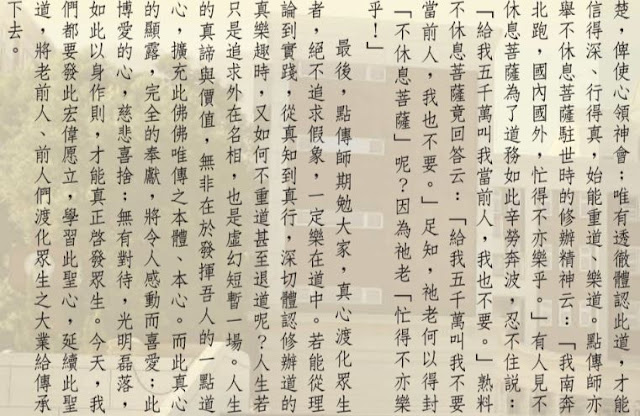 楚，俾使心領神會：唯有透徹體認此道，才能
信得深、行得真，始能重道、樂道。點傳師亦
舉不休息菩薩駐世時的修辦精神云：「我南奔
北跑，國內國外，忙得不亦樂乎。」有人見不
休息菩薩為了道務如此辛勞奔波，忍不住說：
「給我五千萬叫我當前人，我也不要。」熟料
不休息菩薩竟回答云：「給我五千萬叫我不要
當前人，我也不要。」足知，祂老何以得封
「不休息菩薩」呢？因為祂老「忙得不亦樂
乎！」
最後，點傳師期勉大家，真心渡化眾生
者，絕不追求假象，一定樂在道中。若能從理
論到實踐，從真知到真行，深切體認修辦道的
真樂趣時，又如何不重道甚至退道呢？人生若
只是追求外在名相，也是虛幻短暫一場。人生
的真諦與價值，無非在於發揮吾人的一點道
心，擴充此佛佛唯傳之本體、本心。而此真心
的顯露，完全的奉獻，將令人感動而喜愛；此
博愛的心，慈悲喜捨；無有對待，光明磊落，
如此以身作則，才能真正啟發眾生。今天，我
們都要發此宏偉愿立，學習此聖心，延續此聖
道，將老前人、前人們渡化眾生之大業給傳承
下去。